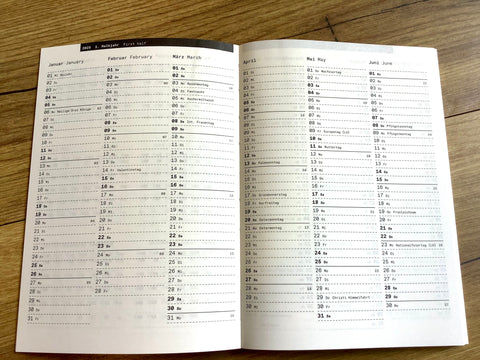 2025 1. Halbjahr First half
Januar January
01 Mi Neujahr
02 Do
03 Fr
04 Sa
05 So
06 Mo Heilige Drei Könige 02
07 Di
08 Mi
09 Do
10 Fr
11 Sa
12 So
13 Mo 03
14 Di
15 Mi
16 Do
17 Fr
18 Sa
19 So
20 Mo 04
21 Di
22 Mi
23 Do
24 Fr
25 Sa
26 So
27 Mo 05
28 Di
29 Mi
30 Do
31 Fr
Februar February
01 Sa
02 So
03 Mo 06
04 Di
05 Mi
06 Do
07 Fr
08 Sa
09 So
10 Mo 07
11 Di
12 Mi
13 Do
14 Fr Valentinstag
15 Sa
16 So
17 Mo 08
18 Di
19 Mi
20 Do
21 Fr
22 Sa
23 So
24 Mo 09
25 Di
26 Mi
27 Do
28 Fr
März March
01 Sa
02 So
03 Mo Rosenmontag 10
04 Di Fastnacht
05 Mi Aschermittwoch
06 Do
07 Fr
08 Sa Int. Frauentag
09 So
10 Mo 11
11 Di
12 Mi
13 Do
14 Fr
15 Sa
16 So
17 Mo 12
18 Di
19 Mi
20 Do
21 Fr
22 Sa
23 So
24 Mo 13
25 Di
26 Mi
27 Do
28 Fr
29 Sa
30 So
31 Mo 14
April
01 Di
02 Mi
03 Do
04 Fr
05 Sa
06 So
07 Mo 15
08 Di
09 Mi
10 Do
11 Fr
12 Sa
13 So Palmsonntag
14 Mo 16
15 Di
16 Mi
17 Do Gründonnerstag
18 Fr Karfreitag
19 Sa
20 So
21 Mo Ostermontag 17
22 Di
23 Mi
24 Do
25 Fr
26 Sa
27 So
28 Mo 18
29 Di
30 Mi
Mai May
01 Do Maifeiertag
02 Fr
03 Sa
04 So
05 Mo 19
06 Di
07 Mi
08 Do
09 Fr Europatag (LU)
10 Sa
11 So Muttertag
12 Mo 20
13 Di
14 Mi
15 Do
16 Fr
17 Sa
18 So
19 Mo 21
20 Di
21 Mi
22 Do
23 Fr
24 Sa
25 So
26 Mo 22
27 Di
28 Mi
29 Do Christi Himmelfahrt
30 Fr
31 Sa
Juni June
01 So
02 Mo 23
03 Di
04 Mi
05 Do
06 Fr
07 Sa
08 So Pfingstsonntag
09 Mo Pfingstmontag 24
10 Di
11 Mi
12 Do
13 Fr
14 Sa
15 So
16 Mo 25
17 Di
18 Mi
19 Do Fronleichnam
20 Fr
21 Sa
22 So
23 Mo Nationalfeiertag (LU) 26
24 Di
25 Mi
26 Do
27 Fr
28 Sa
29 So
30 Mo 27